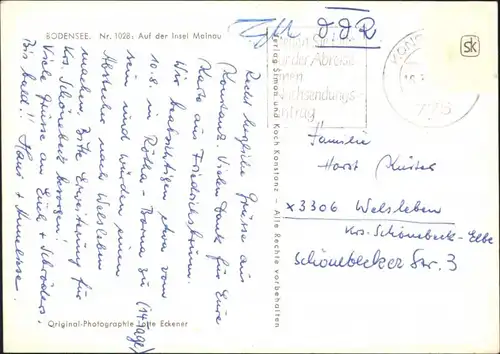 BODENSEE. Nr. 1028: Auf der Insel Mainau
DDR
Recht herzliche Grüsse aus
Konstanz. Vielen Dank für Eure
Karte aus Friedrichsbrunn.
Wir beabsichtigen etwa vom
10.8. in Rötha - Borna zu (14 Tage)
sein und würden einen
Abstecher nach Welsleben
machen. Bitte Erweiterung für
Krs. Schönebeck besorgen!
Viele Grüsse an Euch + Schröders,
Bis bald!! Hans + Annelise.
Original-Photographie Lotte Eckener
Verlag Simon und Koch Konstanz - Alle Rechte vorbehalten
vor der Abreise
Nachsendungs-
antrag
KON
775
sk
Familie
Horst Küster
x 3306 Welsleben
Krs. Schönebeck-Elbe
Schönebecker Str. 3